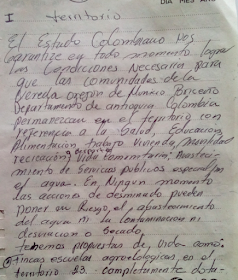 DIA MES AÑO
I territorio
El Estado Colombiano Nos
Garantize en todo momento lograr
las Condiciones Necesarias para
que las comunidades de la
Vereda Municio Briceño
Departamento de antioquia Colombia
permanezcan en el territorio con
referencia a la Salud, Educacion
Alimentacion trabajo Vivienda,
recreacion, Vida Comunitaria,
miento de Servicios publicos especial/en
el agua. En Ningun momento
las acciones de desminado pueden
Poner en Riesgo, el abastecimiento
del agua en la contaminacion ni
desviacion o Secado.
tenemos propuestas de, Orden como:
fincas escuelas agroecologicas, en el
territorio 23. completamente dota-